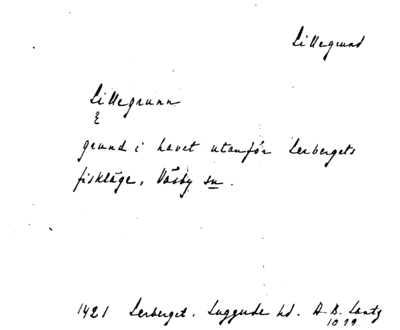 Lillegrund
Lillegrunn
ε
grund i havet utanför Lerbergets
fiskläge, Väsby sn.
1421 Lerberget. Luggude hd. A. B. Lantz
1929